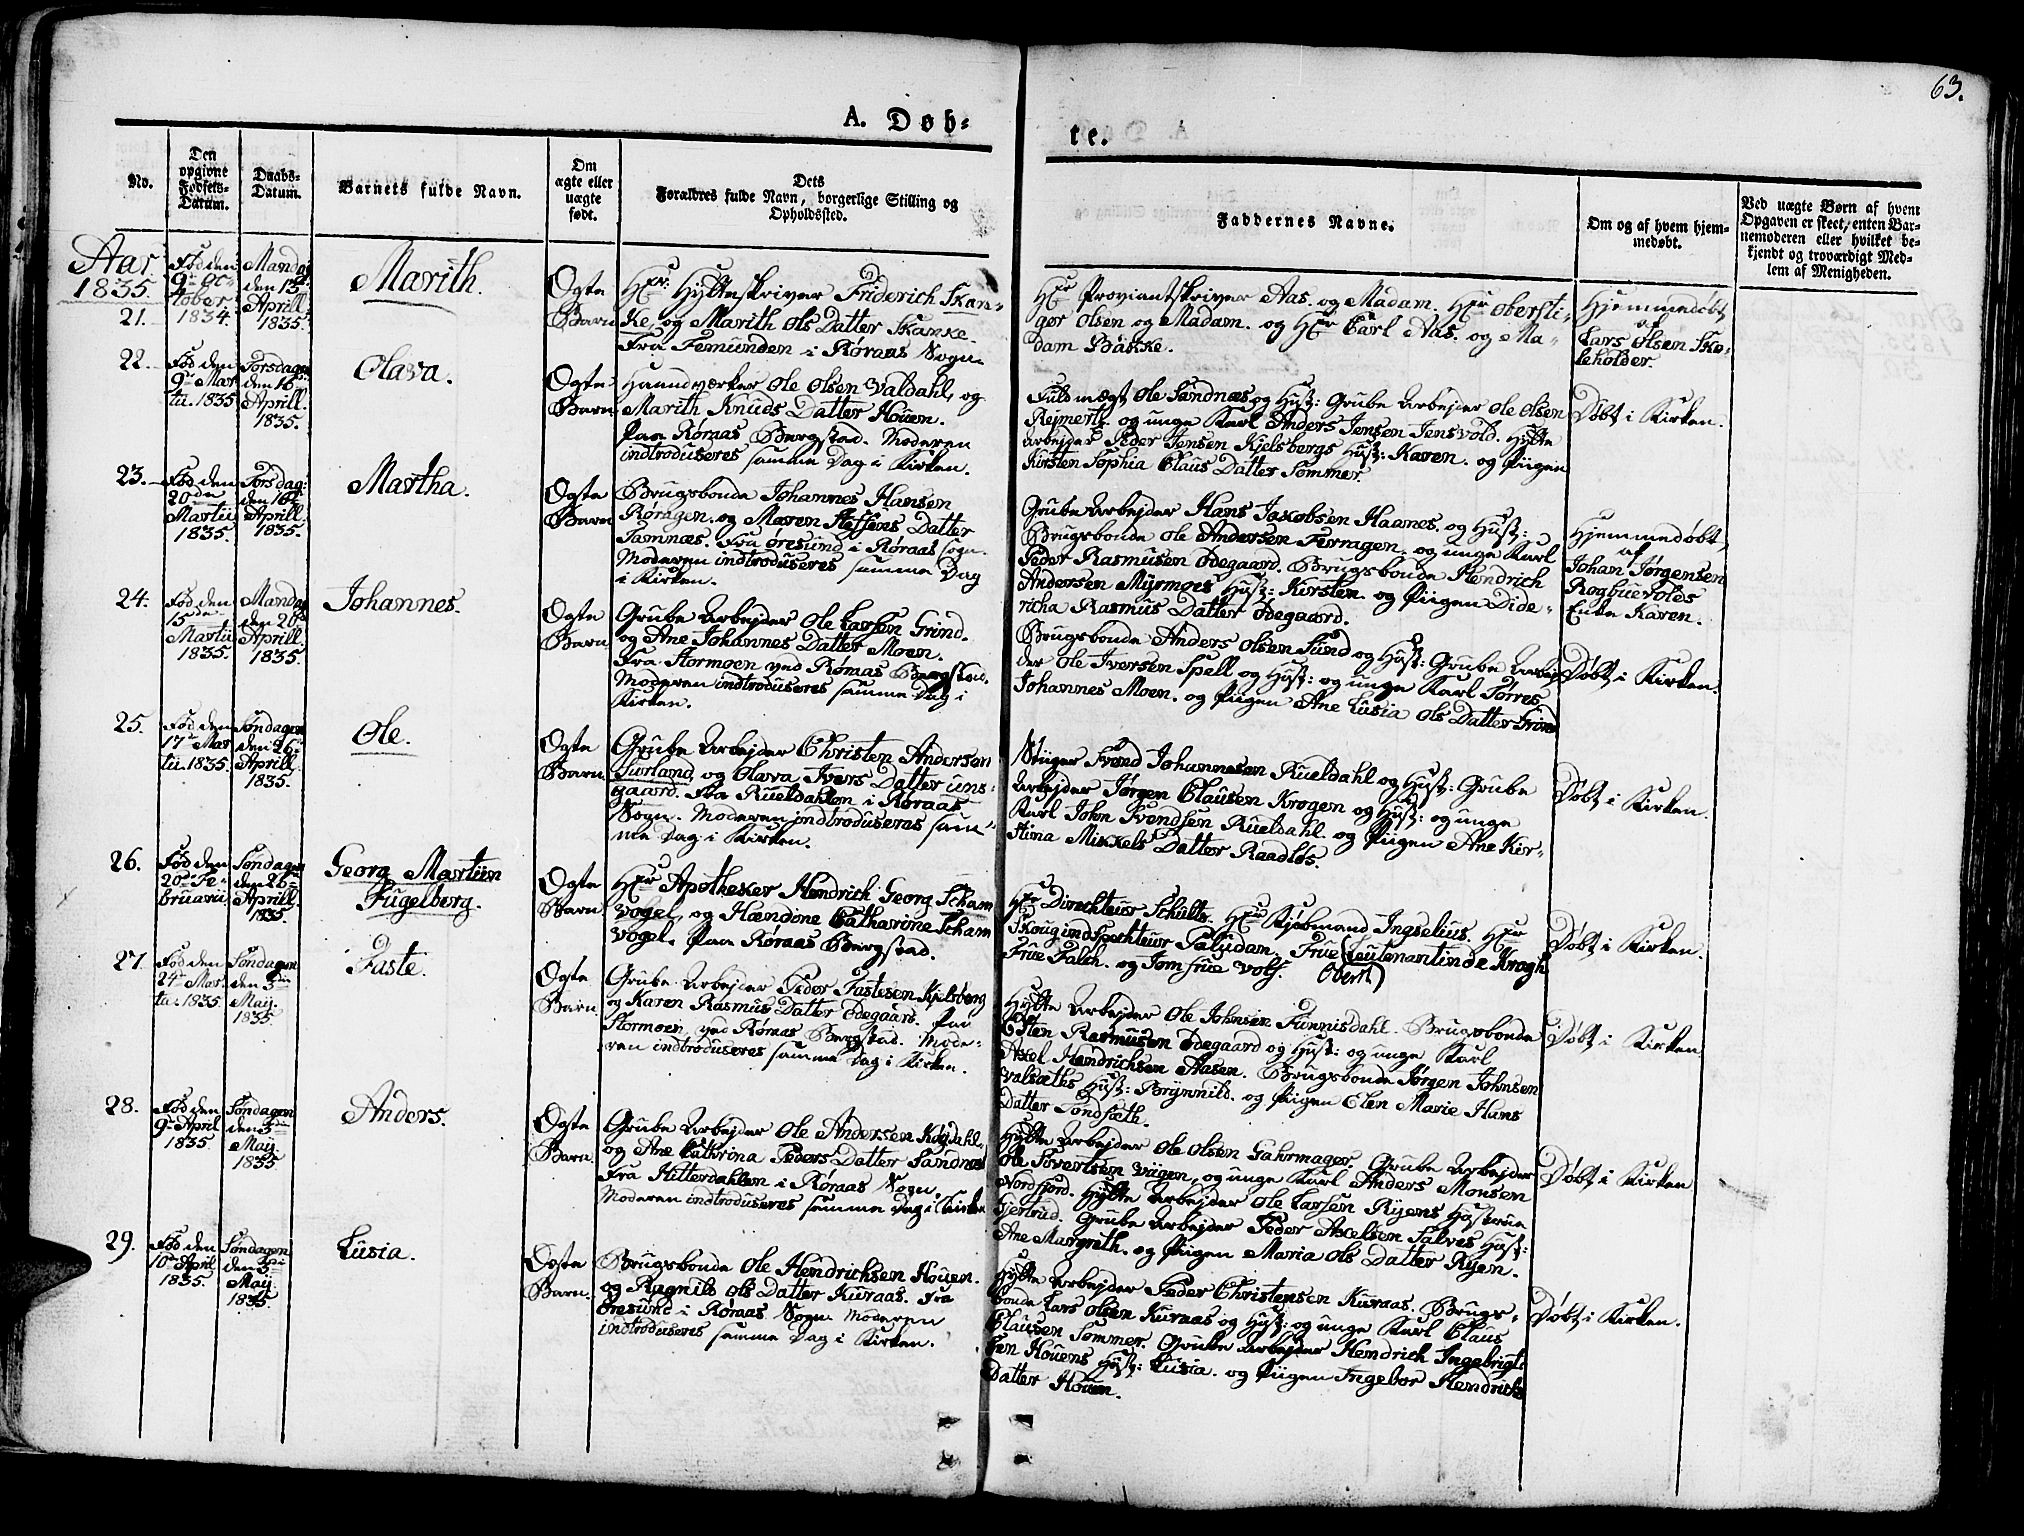 63.
A. Døb-
te.
No.
Den opgivne Fødsels-Datum.
Daabs-Datum.
Barnets fulde Navn.
Om ægte eller uægte født.
Dets Forældres fulde Navn, borgerlige Stilling og Opholdssted.
Faddernes Navne.
Om og af hvem hjemmedøbt.
Ved uægte Børn af hvem Opgaven er skeet, enten Barnemoderen eller hvilket bekjendt og troværdigt Medlem af Menigheden.
Aar
1835.
21.
Fød den
9de Oc-
tober
1834.
Mandag
den 13de
Aprill
1835.
Marith.
Ægte
Barn
Hr: Hytteskriver Friderich Skan-
ke, og Marith Ols Datter Skanke.
Fra Femunden i Røraas Sogn.
Hr Proviantskriver Aas. og Madam. Hr Obersti-
ger Olsen og Madam. og Hr Carl Aas. og Ma-
dam Bakke.
Hjemmedøbt
af
Lars Olsen Sko-
leholder.
22.
Fød den
9de Mar
tii. 1835
Torsdagen
den 16de
Aprill.
1835.
Olava.
Ægte
Barn
Haandværker Ole Olsen Valdahl, og
Marith Knuds Datter Houen.
Paa Røraas Bergstad. Moderen
indtroduseres samme Dag i Kirken.
Fuldmægt Ole Sandnæs og Hust: Grube Arbejder Ole Olsen
Rejmertz. og unge Karl Anders Jensen Jensvold. Hytte
Arbejder Peder Jensen Kjelsbergs Hust: Karen. og Piigen
Kirsten Sophia Claus Datter Sommer.
Døbt i Kirken.
23.
Fød den
20de
Martii
1835.
Torsdag:
den 16de
Aprill.
1835.
Martha.
Ægte
Barn
Brugsbonde Johannes Hansen
Røragen. og Maren Steffens Datter
Tamnæs. Fra Øresund i Røraas Sogn.
Moderen indtroduseres samme Dag
i Kirken.
Grube Arbejder Hans Jakobsen Haanes. og Hust:
Brugsbonde Ole Andersen Ferragen. og unge Karl
Peder Rasmusen Ødegaard. Brugsbonde Hendrich
Andersen Myrmoes Hust: Kirsten. og Piigen Dide-
richa Rasmus Datter Ødegaard.
Hjemmedøbt,
af
Johan Jørgensen
Rogbuevolds
Enke Karen.
24.
Fød den
15de
Martii
1835.
Mandag
den 20de
Aprill.
1835.
Johannes.
Ægte
Barn
Grube Arbejder Ole Larsen Grind.
og Ane Johannes Datter Moen.
Fra Stormoen ved Røraas Bergstad.
Moderen indtroduseres samme Dag i
Kirken.
Brugsbonde Anders Olsen Sund og Hust: Grube Arbej
der Ole Iversen Spell og Hust: og unge Karl Tørres
Johannes Moen. og Piigen Ane Lusia Ols Datter Grind
Døbt i Kirken.
25.
Fød den
17de Mar
tii. 1835.
Søndagen
den 26de
Aprill.
1835.
Ole.
Ægte
Barn
Grube Arbejder Christen Andersen
Surland, og Olava Ivers Datter Uns-
gaard. Fra Rueldahlen i Røraas
Sogn. Moderen indtroduseres sam-
me Dag i Kirken.
Stiiger Svend Johannesen Rueldahl og Hust: Grube
Arbejder Jørgen Clausen Krogen og Hust: og unge
Karl John Svendsen Rueldahl. og Piigen Ane Kir-
stina Mikkels Datter Raadløs.
Døbt i Kirken.
26.
Fød den
20de Fe-
bruarii
Søndagen
den 26de
Aprill.
1835.
Georg Martiin
Fugelberg.
Ægte
Barn
Hr Apotheker Hendrich Georg Scham
vogel, og Hændine Catharine Scham
vogel. Paa Røraas Bergstad.
Hr Direchteur Schult. Hr Kjøbmand Ingselius. Hr
Skouginspechteur Paludam. Frue Leutenantinde Krogh
Oberst
Frue Falch. og Jomfrue Wolf.
Døbt i Kirken.
27.
Fød den
24de Mar
tii. 1835
Søndagen
den 3die
Maij.
1835.
Faste.
Ægte
Barn
Grube Arbejder Peder Fastesen Kjelsberg
og Karen Rasmus Datter Ødegaard. Paa
Stormoen, ved Røraas Bergstad. Mode-
ren indtroduseres samme Dag i Kirken.
Hytte Arbejder Ole Johnsen Funnisdahl. Brugsbonde
Even Rasmusen Ødegaard og Hust: og unge Karl
Axel Hendrichsen Aasen. Brugsbonde Jørgen Johnsen
Valsæths Hust: Brynmild. og Piigen Elen Marie Hans
Datter Sundsæth.
Døbt i Kirken
28.
Fød den
9de April
1835
Søndagen
den 3die
Maij.
1835
Anders.
Ægte
Barn.
Grube Arbejder Ole Andersen Kojdahl,
og Ane Cathrina Peders Datter Sandnæs
Fra Hitterdahlen i Røraas Sogn.
Moderen indtroduseres samme Dag i Kirken
Hytte Arbejder Ole Olsen Gahrmager. Grube Arbejder
Ole Sivertsen Viigen, og unge Karl Anders Monsen
Nordfjord. Hytte Arbejder Ole Larsen Ryens Hustrue
Gjertrud. Grube Arbejder Peder Axelsen Galvos Hust:
Ane Margreth. og Piigen Maria Ols Datter Ryen.
Døbt i Kirken
29.
Fød den
10de April
1835.
Søndagen
den 3die
Maij
1835.
Lusia.
Ægte
Barn.
Brugsbonde Ole Hendrichsen Houen.
og Ragnild Ols Datter Kuraas. Fra
Øresund i Røraas Sogn. Moderen
indtroduseres samme Dag i Kirken.
Hytte Arbejder Peder Christensen Kuraas. Brugs-
bonde Lars Olsen Kuraas og Hust: og unge Karl Claus
Clausen Sommer. Grube Arbejder Hendrich Ingebrigt
sen Houens Hust: Lusia. og Piigen Ingebor Hendrichs
Datter Houen.
Døbt i Kirken.